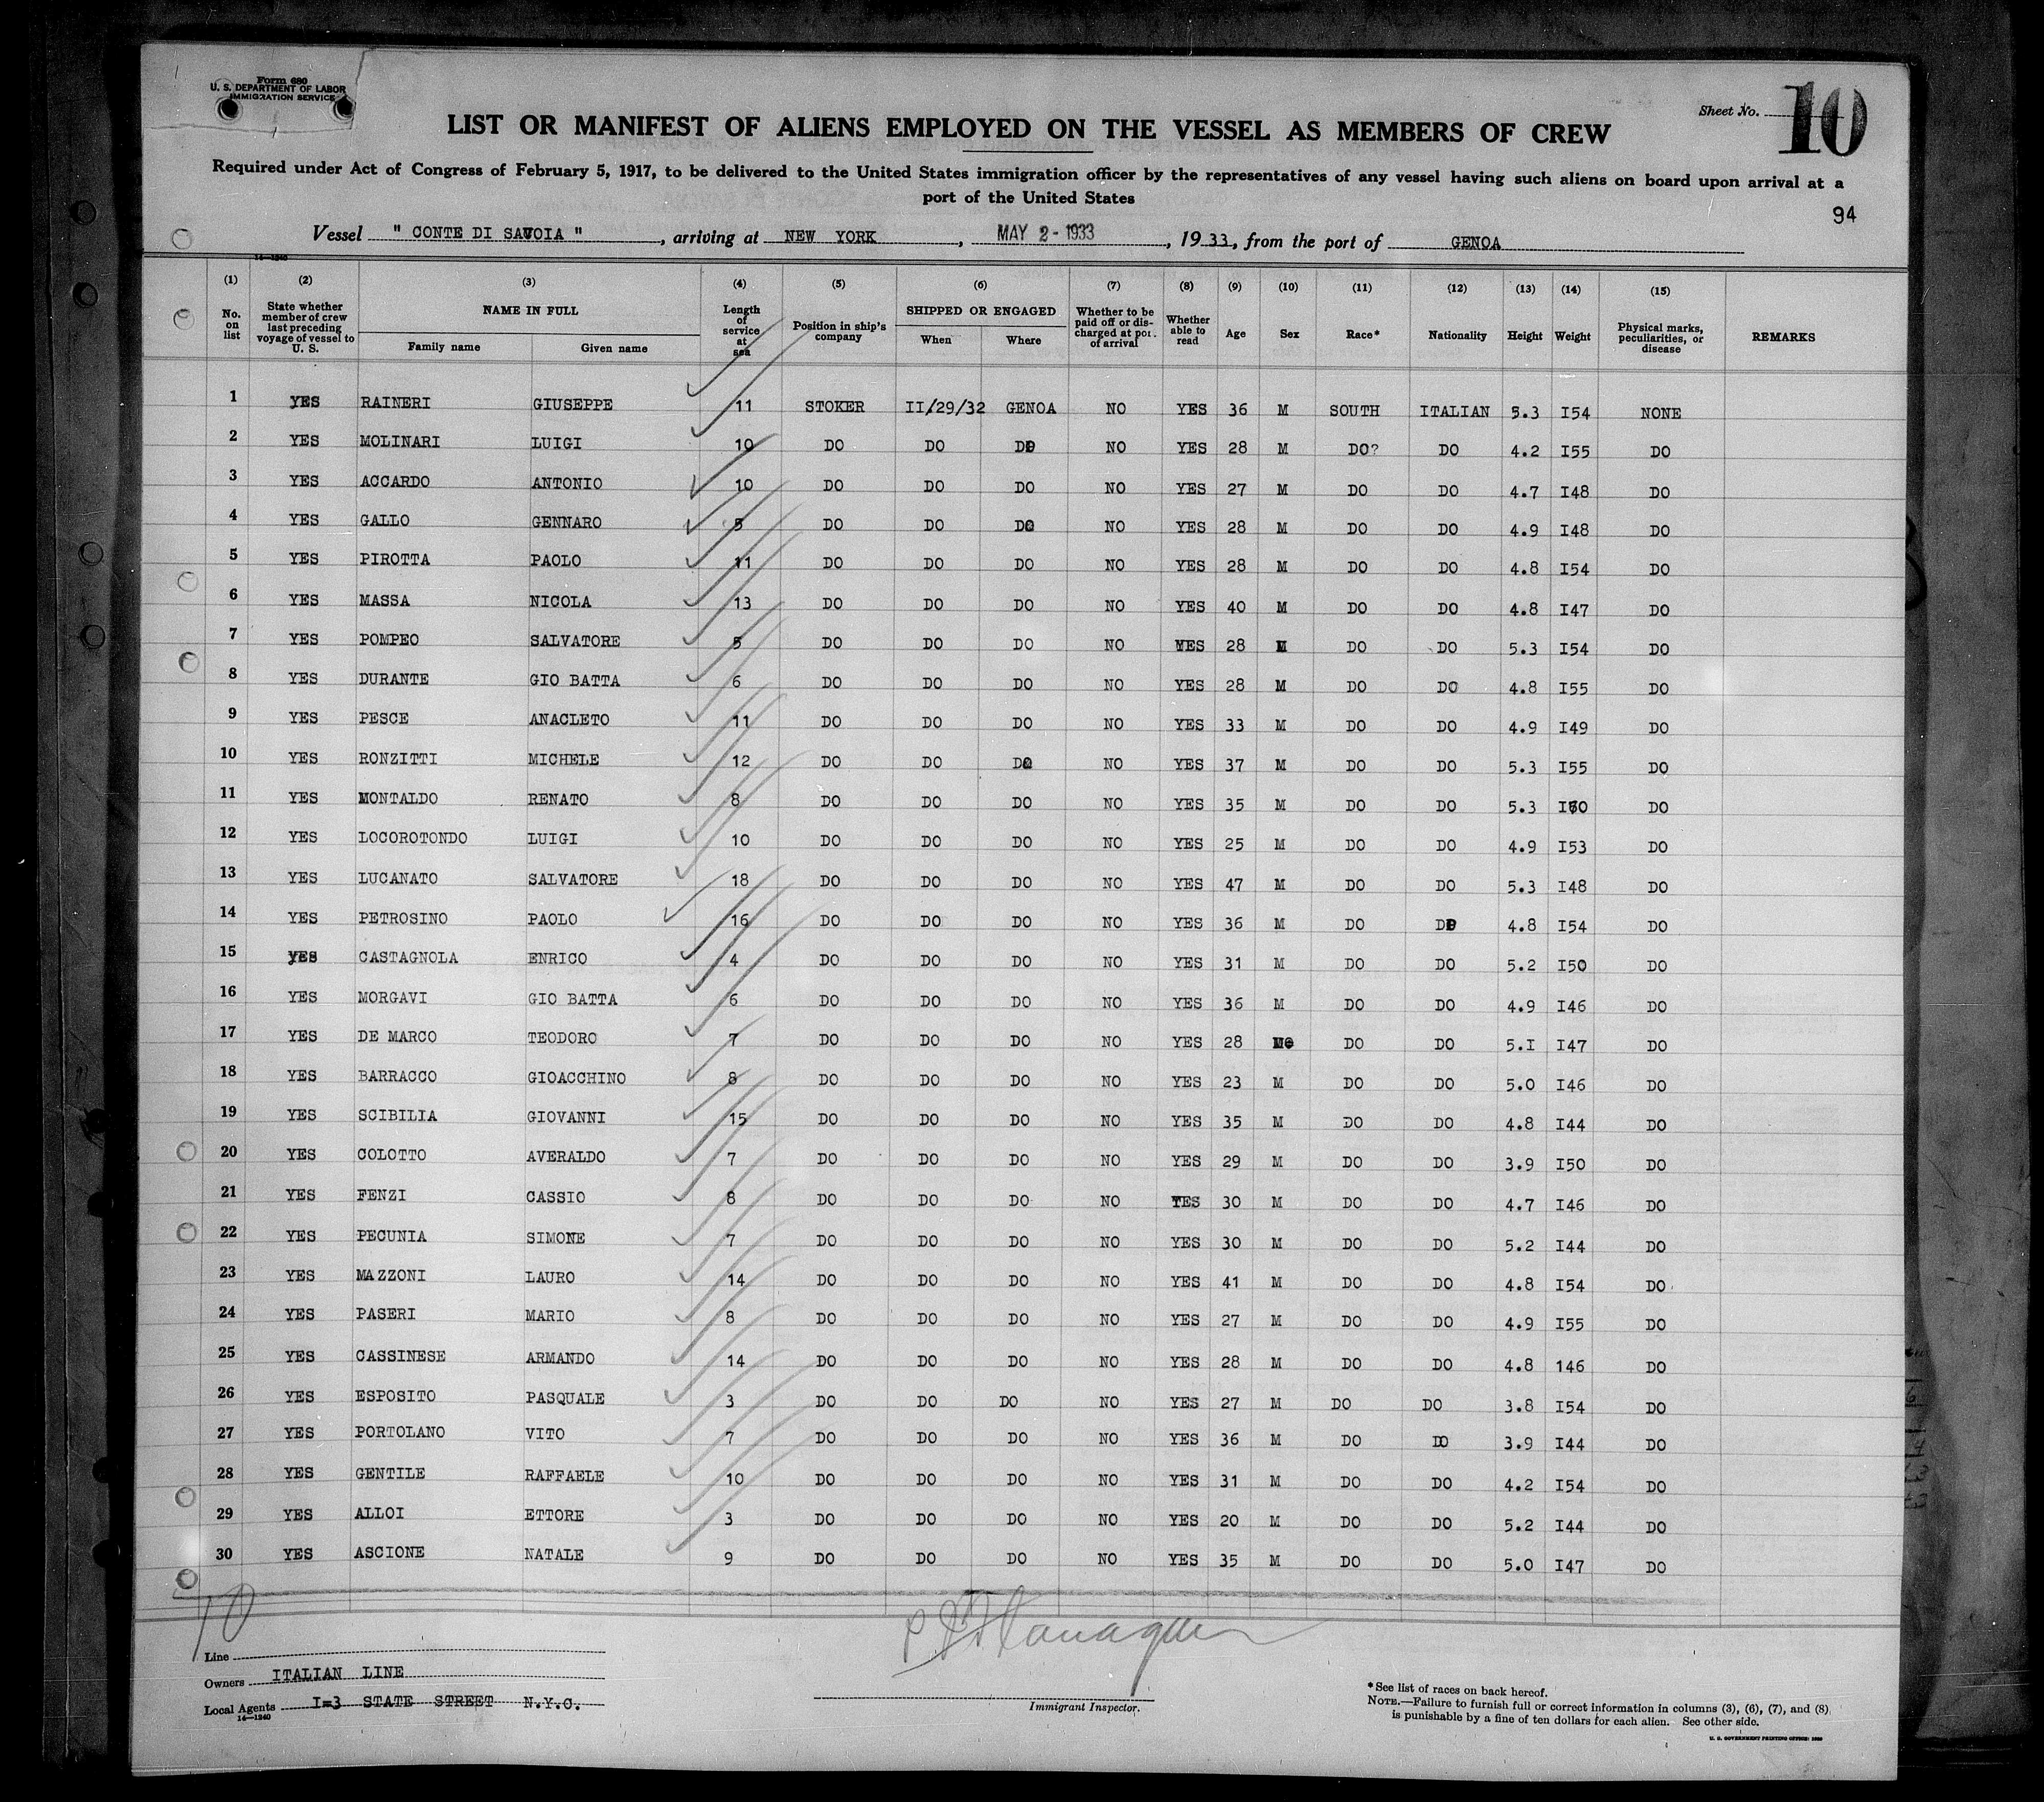 Form 680
U. S. DEPARTMENT OF LABOR
IMMIGRATION SERVICE
Sheet No. 10
LIST OR MANIFEST OF ALIENS EMPLOYED ON THE VESSEL AS MEMBERS OF CREW
Required under Act of Congress of February 5, 1917, to be delivered to the United States immigration officer by the representatives of any vessel having such aliens on board upon arrival at a
port of the United States
94
Vessel " CONTE DI SAVOIA ", arriving at NEW YORK, MAY 2 - 1933, 1933, from the port of GENOA
14—1240
(1) (2) (3) (4) (5) (6) (7) (8) (9) (10) (11) (12) (13) (14) (15)
No. on list State whether member of crew last preceding voyage of vessel to U. S. NAME IN FULL Family name Given name Length of service at sea Position in ship's company SHIPPED OR ENGAGED When Where Whether to be paid off or discharged at port of arrival Whether able to read Age Sex Race* Nationality Height Weight Physical marks, peculiarities, or disease REMARKS
1 YES RAINERI GIUSEPPE 11 STOKER II/29/32 GENOA NO YES 36 M SOUTH ITALIAN 5.3 I54 NONE
2 YES MOLINARI LUIGI 10 DO DO DO NO YES 28 M DO? DO 4.2 I55 DO
3 YES ACCARDO ANTONIO 10 DO DO DO NO YES 27 M DO DO 4.7 I48 DO
4 YES GALLO GENNARO 5 DO DO DO NO YES 28 M DO DO 4.9 I48 DO
5 YES PIROTTA PAOLO 11 DO DO DO NO YES 28 M DO DO 4.8 I54 DO
6 YES MASSA NICOLA 13 DO DO DO NO YES 40 M DO DO 4.8 I47 DO
7 YES POMPEO SALVATORE 5 DO DO DO NO YES 28 M DO DO 5.3 I54 DO
8 YES DURANTE GIO BATTA 6 DO DO DO NO YES 28 M DO DO 4.8 I55 DO
9 YES PESCE ANACLETO 11 DO DO DO NO YES 33 M DO DO 4.9 I49 DO
10 YES RONZITTI MICHELE 12 DO DO DO NO YES 37 M DO DO 5.3 I55 DO
11 YES MONTALDO RENATO 8 DO DO DO NO YES 35 M DO DO 5.3 DO
12 YES LOCOROTONDO LUIGI 10 DO DO DO NO YES 25 M DO DO 4.9 I53 DO
13 YES LUCANATO SALVATORE 18 DO DO DO NO YES 47 M DO DO 5.3 I48 DO
14 YES PETROSINO PAOLO 16 DO DO DO NO YES 36 M DO DO 4.8 I54 DO
15 YES CASTAGNOLA ENRICO 4 DO DO DO NO YES 31 M DO DO 5.2 I50 DO
16 YES MORGAVI GIO BATTA 6 DO DO DO NO YES 36 M DO DO 4.9 I46 DO
17 YES DE MARCO TEODORO 7 DO DO DO NO YES 28 M DO DO 5.I I47 DO
18 YES BARRACCO GIOACCHINO 8 DO DO DO NO YES 23 M DO DO 5.0 I46 DO
19 YES SCIBILIA GIOVANNI 15 DO DO DO NO YES 35 M DO DO 4.8 I44 DO
20 YES COLOTTO AVERALDO 7 DO DO DO NO YES 29 M DO DO 3.9 I50 DO
21 YES FENZI CASSIO 8 DO DO DO NO YES 30 M DO DO 4.7 I46 DO
22 YES PECUNIA SIMONE 7 DO DO DO NO YES 30 M DO DO 5.2 I44 DO
23 YES MAZZONI LAURO 14 DO DO DO NO YES 41 M DO DO 4.8 I54 DO
24 YES PASERI MARIO 8 DO DO DO NO YES 27 M DO DO 4.9 I55 DO
25 YES CASSINESE ARMANDO 14 DO DO DO NO YES 28 M DO DO 4.8 146 DO
26 YES ESPOSITO PASQUALE 3 DO DO DO NO YES 27 M DO DO 3.8 I54 DO
27 YES PORTOLANO VITO 7 DO DO DO NO YES 36 M DO DO 3.9 I44 DO
28 YES GENTILE RAFFAELE 10 DO DO DO NO YES 31 M DO DO 4.2 I54 DO
29 YES ALLOI ETTORE 3 DO DO DO NO YES 20 M DO DO 5.2 I44 DO
30 YES ASCIONE NATALE 9 DO DO DO NO YES 35 M DO DO 5.0 I47 DO
10
Line
Owners ITALIAN LINE
Local Agents I=3 STATE STREET N.Y.C.
14—1240
Immigrant Inspector.
*See list of races on back hereof.
NOTE.—Failure to furnish full or correct information in columns (3), (6), (7), and (8)
is punishable by a fine of ten dollars for each alien. See other side.
U. S. GOVERNMENT PRINTING OFFICE: